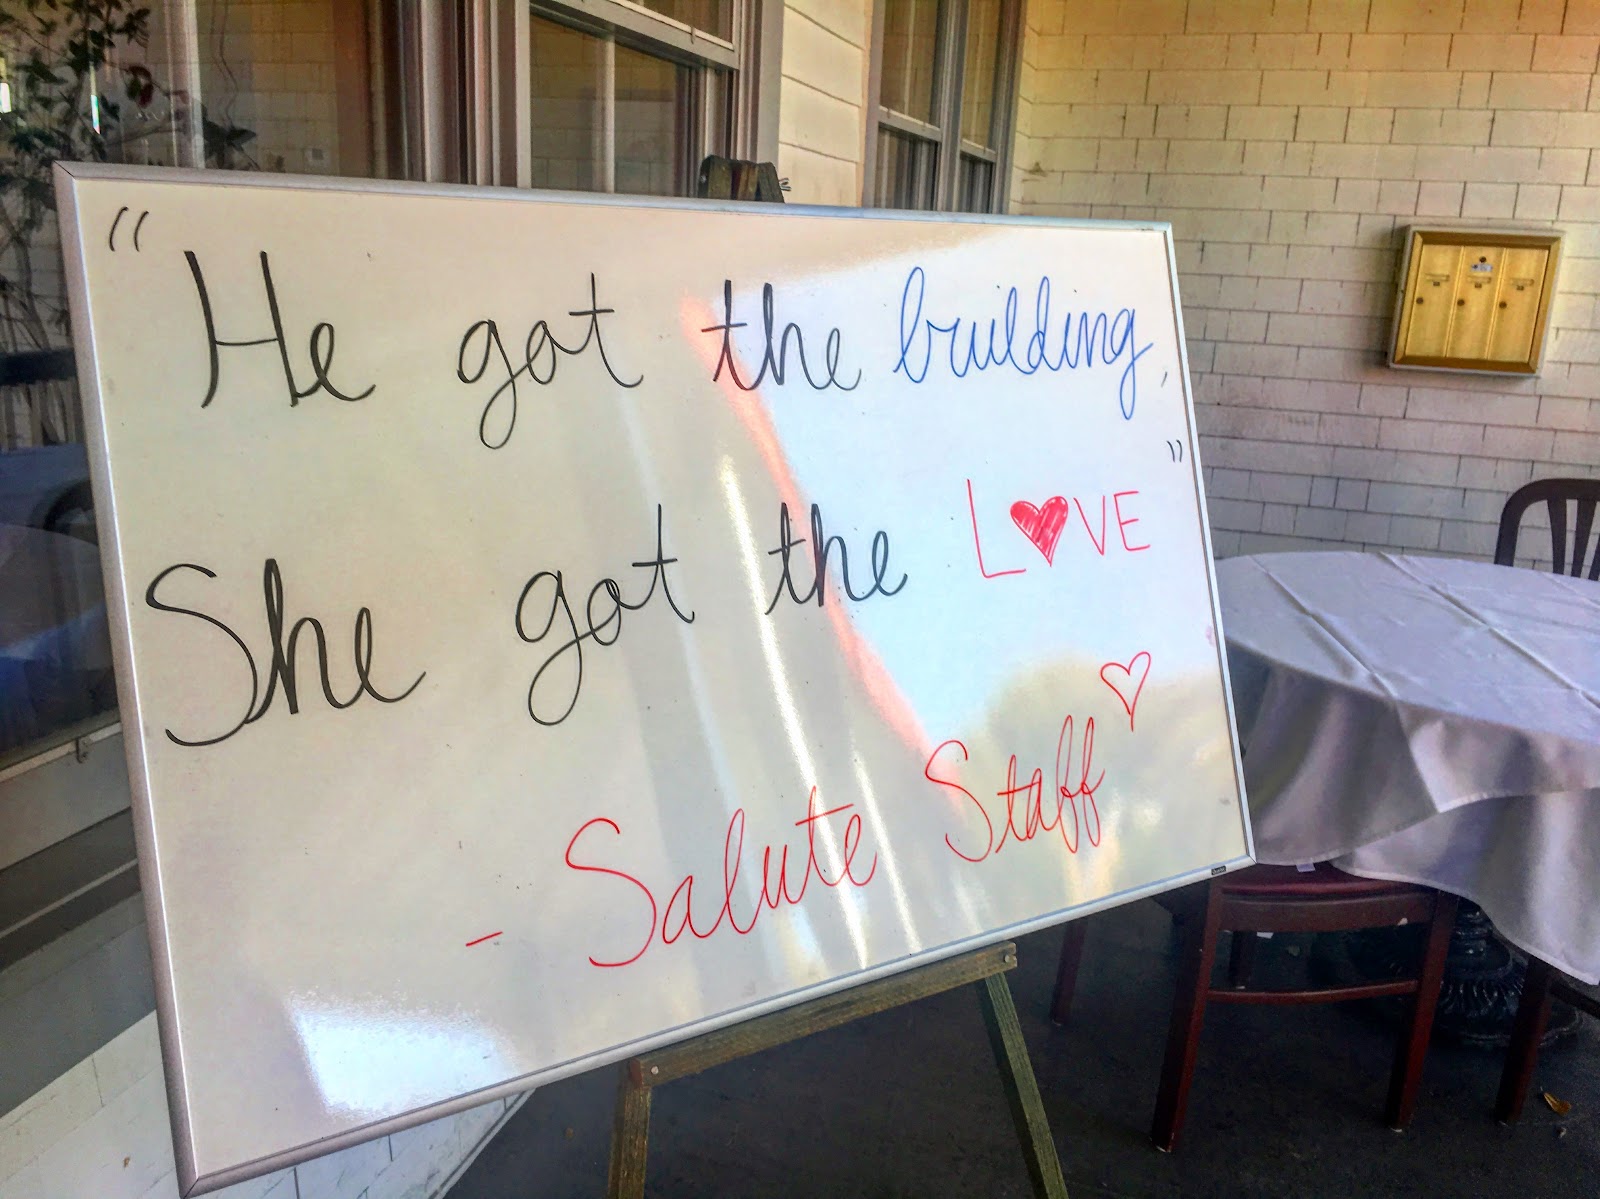 "He got the building,
She got the LOVE"
- Salute Staff